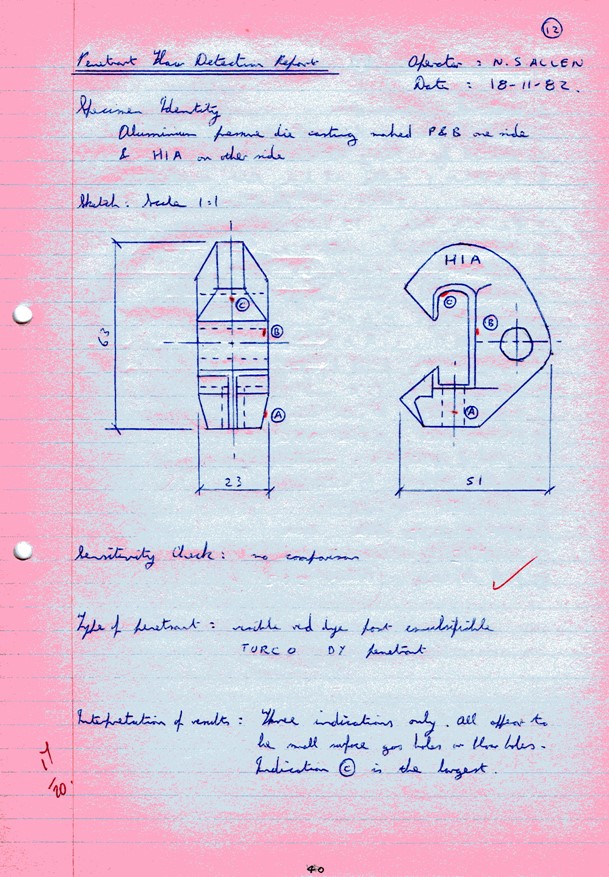 12
Penetrant Flaw Detection Report
Operator : N. S ALLEN
Date : 18-11-82.
Specimen Identity
Aluminium pressure die casting marked P&B one side
& HIA on other side
Sketch: Scale 1:1
HIA
C
C
B
B
63
A
A
23
51
Sensitivity Check : no comparison
Type of penetrant : visible red dye post emulsifiable
TURCO DY penetrant
Interpretation of results : Three indications only. All appear to
be small surface gas holes or blow holes.
Indication C is the largest.
17/20.
40